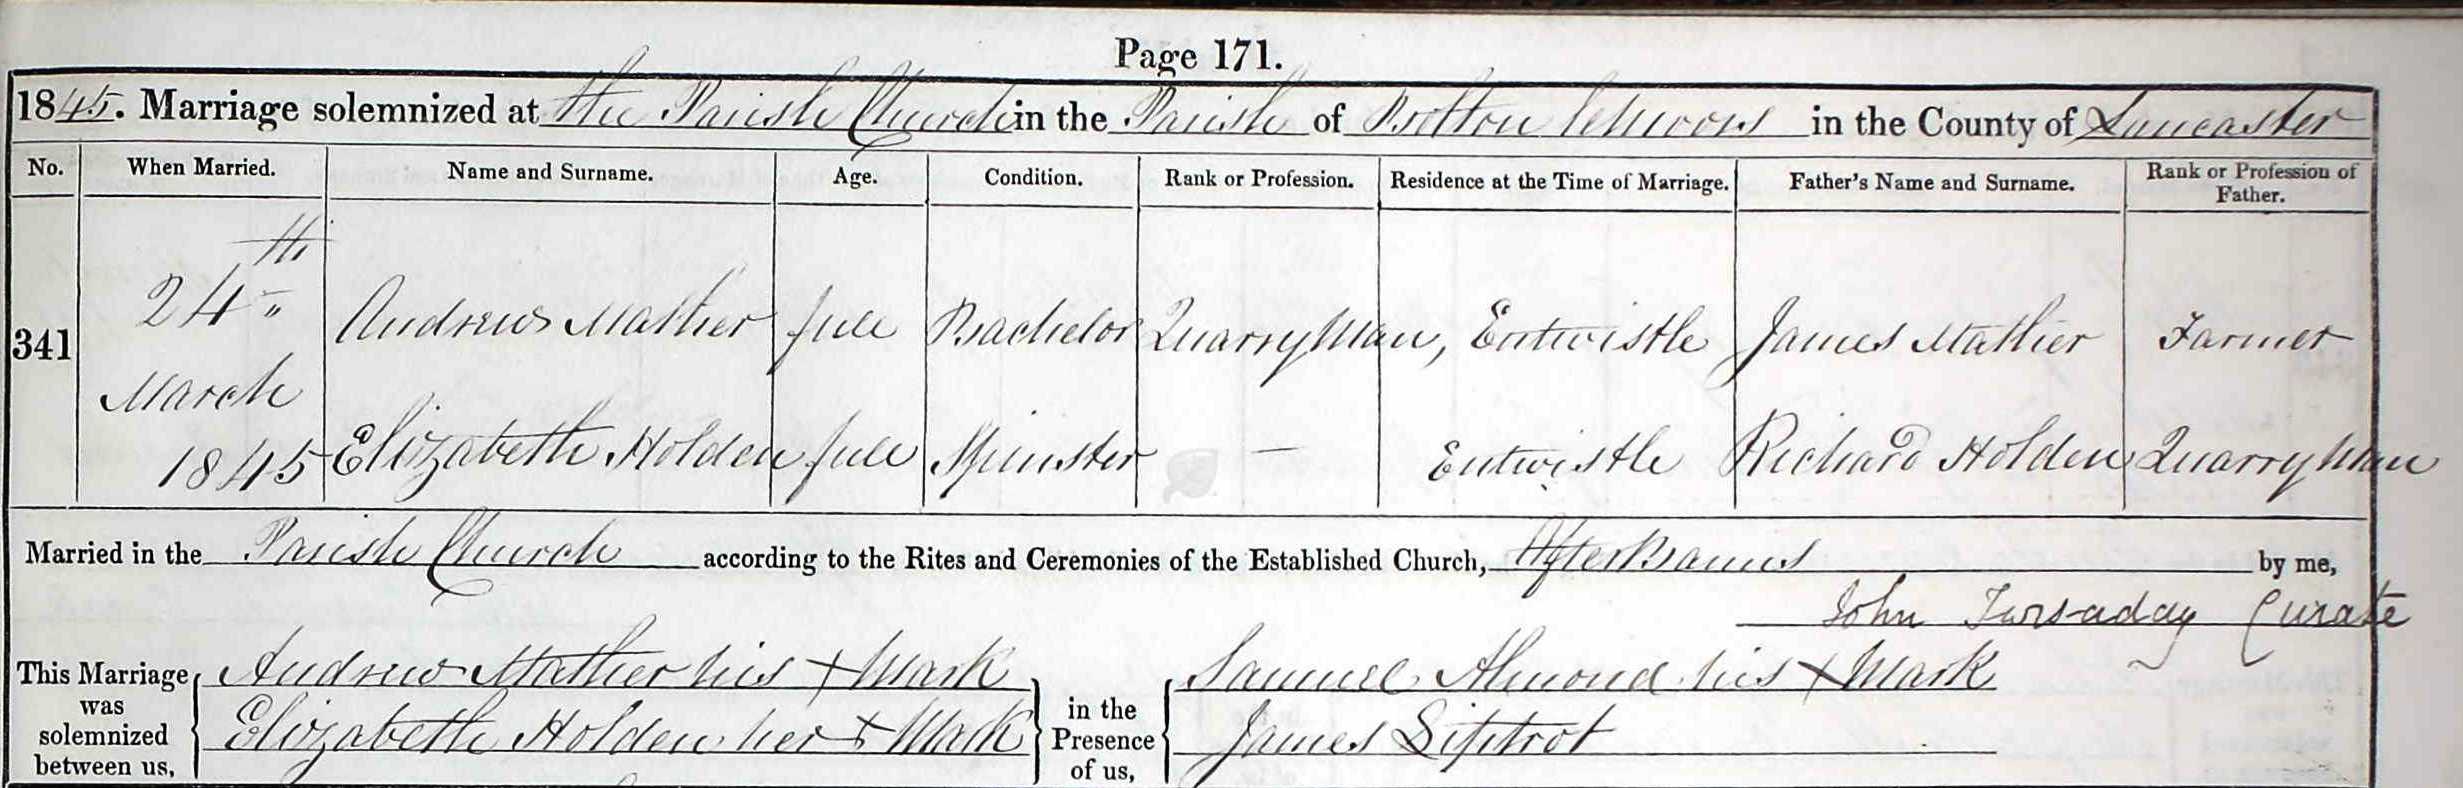 Page 171.
1845. Marriage solemnized at the Parish Church in the Parish of Bolton le Moors in the County of Lancaster
No. When Married. Name and Surname. Age. Condition. Rank or Profession. Residence at the Time of Marriage. Father's Name and Surname. Rank or Profession of Father.
341 24th March 1845 Andrew Mather full Bachelor Quarryman, Entwistle James Mather Farmer
Elizabeth Holden full Spinster — Entwistle Richard Holden Quarryman
Married in the Parish Church according to the Rites and Ceremonies of the Established Church, After Banns by me,
John Curate
This Marriage was solemnized between us, Andrew Mather his + Mark in the Presence of us, Samuel Almond his + Mark
Elizabeth Holden her + Mark James Siptrot